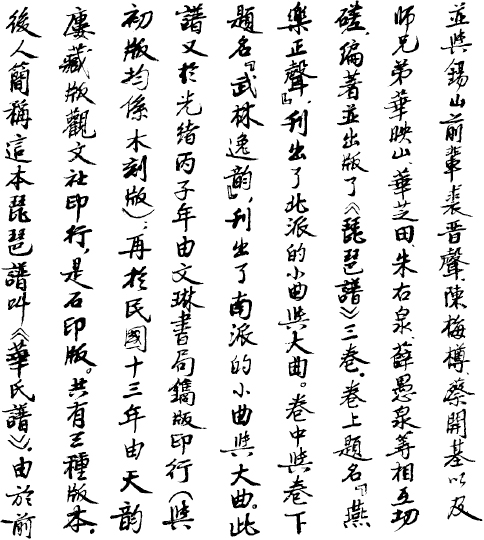 並與錫山前輩裘晋聲、陳梅樽、蔡開基以及
師兄弟華映山、華芝田、朱右泉、薛愚泉等相互切
磋，编著並出版了《琵琶譜》三卷。卷上題名『燕
樂正聲』，刊出了北派的小曲與大曲。卷中與卷下
題名『武林逸韵』，刊出了南派的小曲與大曲。此
譜又於光緒丙子年由文琳書局鐫版印行（與
初版均係木刻版）；再於民國十三年由天韵
廔藏版觀文社印行，是石印版。共有三種版本。
後人簡稱這本琵琶譜叫《華氏譜》。由於前